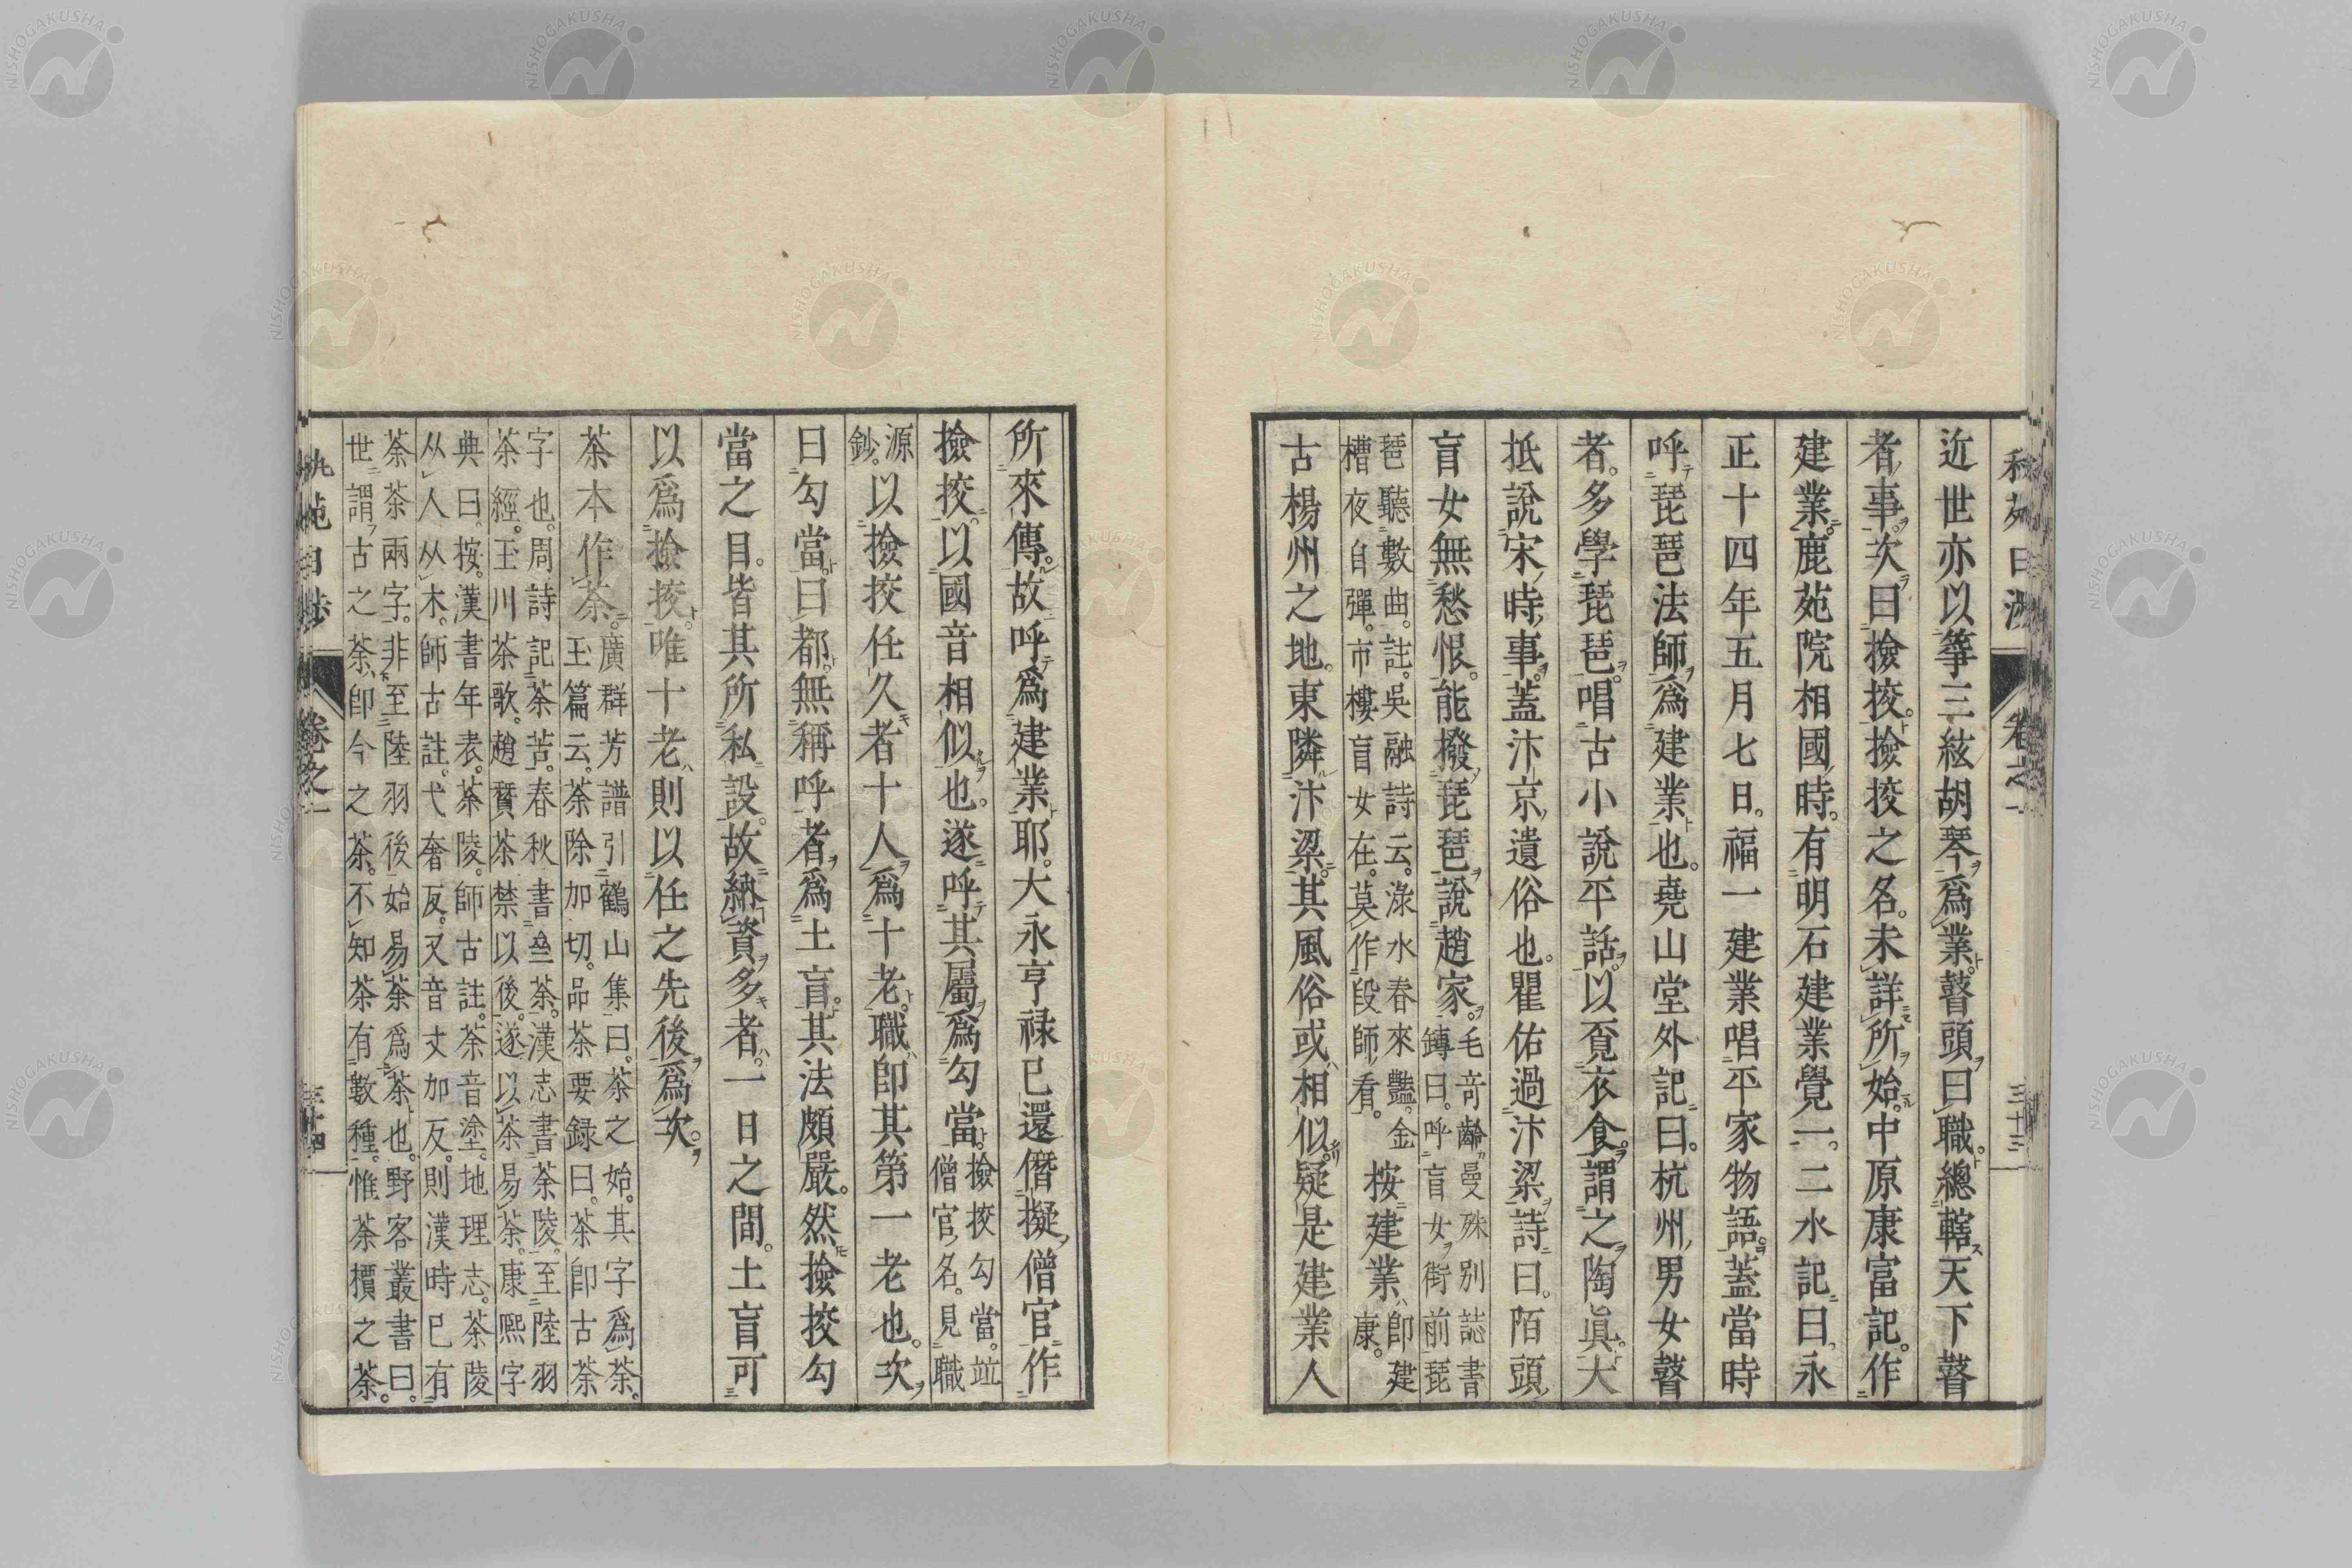 近世亦以箏三絃胡琴爲業瞽頭曰職。總轄天下瞽
者事。次曰撿挍。撿挍之名。未詳所始。中原康富記。作
建業。鹿苑院相國時。有明石建業覺一。二水記曰。永
正十四年五月七日。福一建業唱平家物語。蓋當時
呼琵琶法師爲建業也。堯山堂外記曰。杭州男女瞽
者。多學琵琶。唱古小說平話。以覓衣食。謂之陶眞。大
抵說宋時事。蓋汴京遺俗也。瞿佑過汴梁詩曰。陌頭
盲女無愁恨。能撥琵琶說趙家。毛竒齡曼殊別誌書
鏄曰。呼盲女街前琵
琶聽數曲。註。吳融詩云。淥水春來豔。金
槽夜自彈。市樓盲女在。莫作段師看。按建業卽建
康。
古楊州之地。東隣汴梁。其風俗或相似。疑是建業人
卷之一
三十三
所來傳。故呼爲建業耶。大永亨禄已還僭擬僧官作
撿挍。以國音相似也。遂呼其屬爲勾當。撿挍勾當。竝
僧官名。見職
源
鈔。以撿挍任久者十人爲十老。職卽其第一老也。次
曰勾當。曰都。無稱呼者。爲土盲。其法頗嚴。然撿挍勾
當之目。皆其所私設。故納資多者。一日之間。土盲可
以爲撿挍。唯十老則以任之先後爲次。
茶本作荼。廣群芳譜引鶴山集曰。茶之始。其字爲荼。
玉篇云。荼除加切。品茶要録曰。茶卽古荼
字也。周詩記荼苦。春秋書荼。漢志書荼陵。至陸羽
茶經。玉川茶歌。趙贊茶禁以後。遂以茶易荼。康熙字
典曰。按。漢書年表。荼陵。師古註。荼音塗。地理志。荼陵
从人从木。師古註。弋奢反。又音丈加反。則漢時已有
荼茶兩字。非至陸羽後始易荼爲茶也。野客叢書曰。
世謂古之荼卽今之茶。不知荼有數種。惟荼檟之荼。
卷之一
三十四